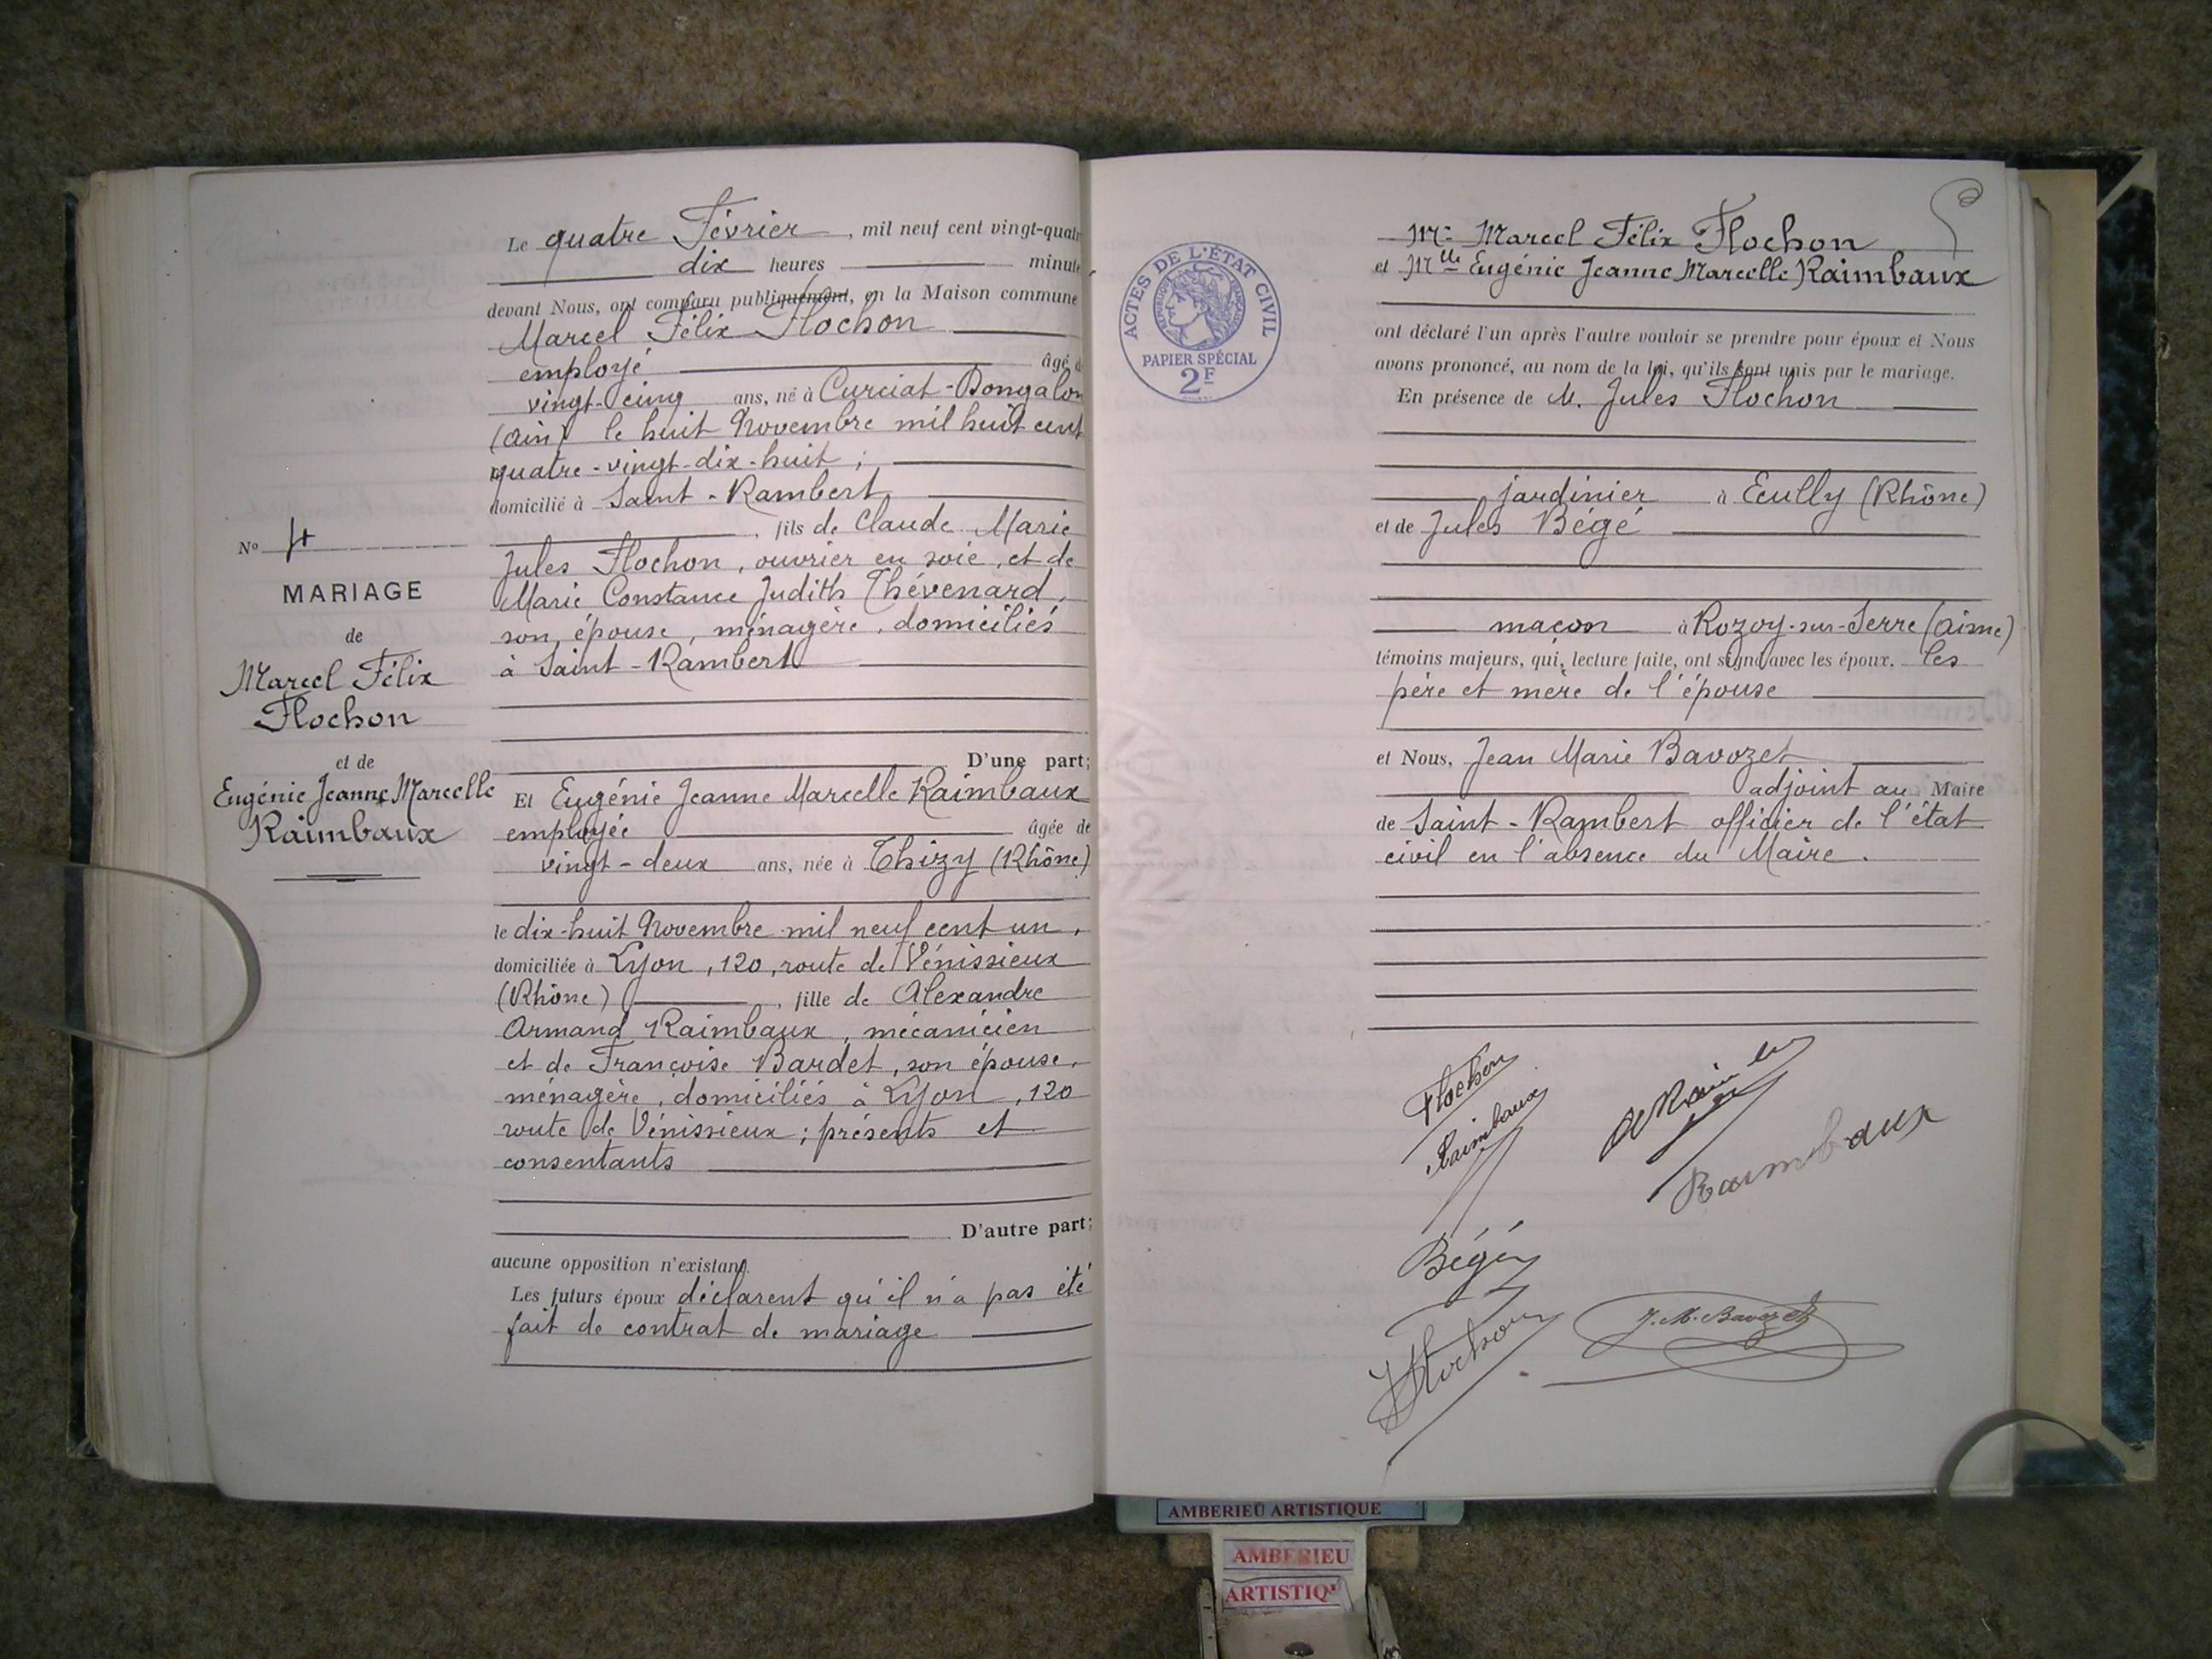 Le quatre Février, mil neuf cent vingt-quatr
dix heures minute
devant Nous, ont comparu publiquement, en la Maison commune
Marcel Félix Flochon
employé âgé d
vingt-cinq ans, né à Curciat-Dongalon
(Ain) le huit Novembre mil huit cent
quatre-vingt-dix-huit ;
domicilié à Saint-Rambert
, fils de Claude Marie
Jules Flochon, ouvrier en soie, et de
Marie Constance Judith Thévenard,
son épouse, ménagère, domiciliés
à Saint-Rambert
D'une part;
No 4
MARIAGE
de
Marcel Félix
Flochon
et de
Eugénie Jeanne Marcelle
Raimbaux
Et Eugénie Jeanne Marcelle Raimbaux
employée âgée de
vingt-deux ans, née à Thizy (Rhône)
le dix-huit Novembre mil neuf cent un,
domiciliée à Lyon, 120, route de Vénissieux
(Rhône), fille de Alexandre
Armand Raimbaux, mécanicien
et de Françoise Bardet, son épouse,
ménagère, domiciliés à Lyon, 120
route de Vénissieux ; présents et
consentants
D'autre part;
aucune opposition n'existant.
Les futurs époux déclarent qu'il n'a pas été
fait de contrat de mariage
ACTES DE L'ÉTAT CIVIL
RÉPUBLIQUE FRANÇAISE
PAPIER SPÉCIAL
2F
Mr Marcel Félix Flochon
et Mlle Eugénie Jeanne Marcelle Raimbaux
ont déclaré l'un après l'autre vouloir se prendre pour époux et Nous
avons prononcé, au nom de la loi, qu'ils sont unis par le mariage.
En présence de M. Jules Flochon
jardinier à Ecully (Rhône)
et de Jules Bégé
maçon à Rozoy-sur-Serre (Aisne)
témoins majeurs, qui, lecture faite, ont signé avec les époux. les
père et mère de l'épouse
et Nous, Jean Marie Bavozet
adjoint au Maire
de Saint-Rambert officier de l'état
civil en l'absence du Maire.
Flochon
Raimbaux
Raimbaux
Bégé
J Flochon
J. M. Bavozet
AMBERIEU ARTISTIQUE
AMBERIEU
ARTISTIQ